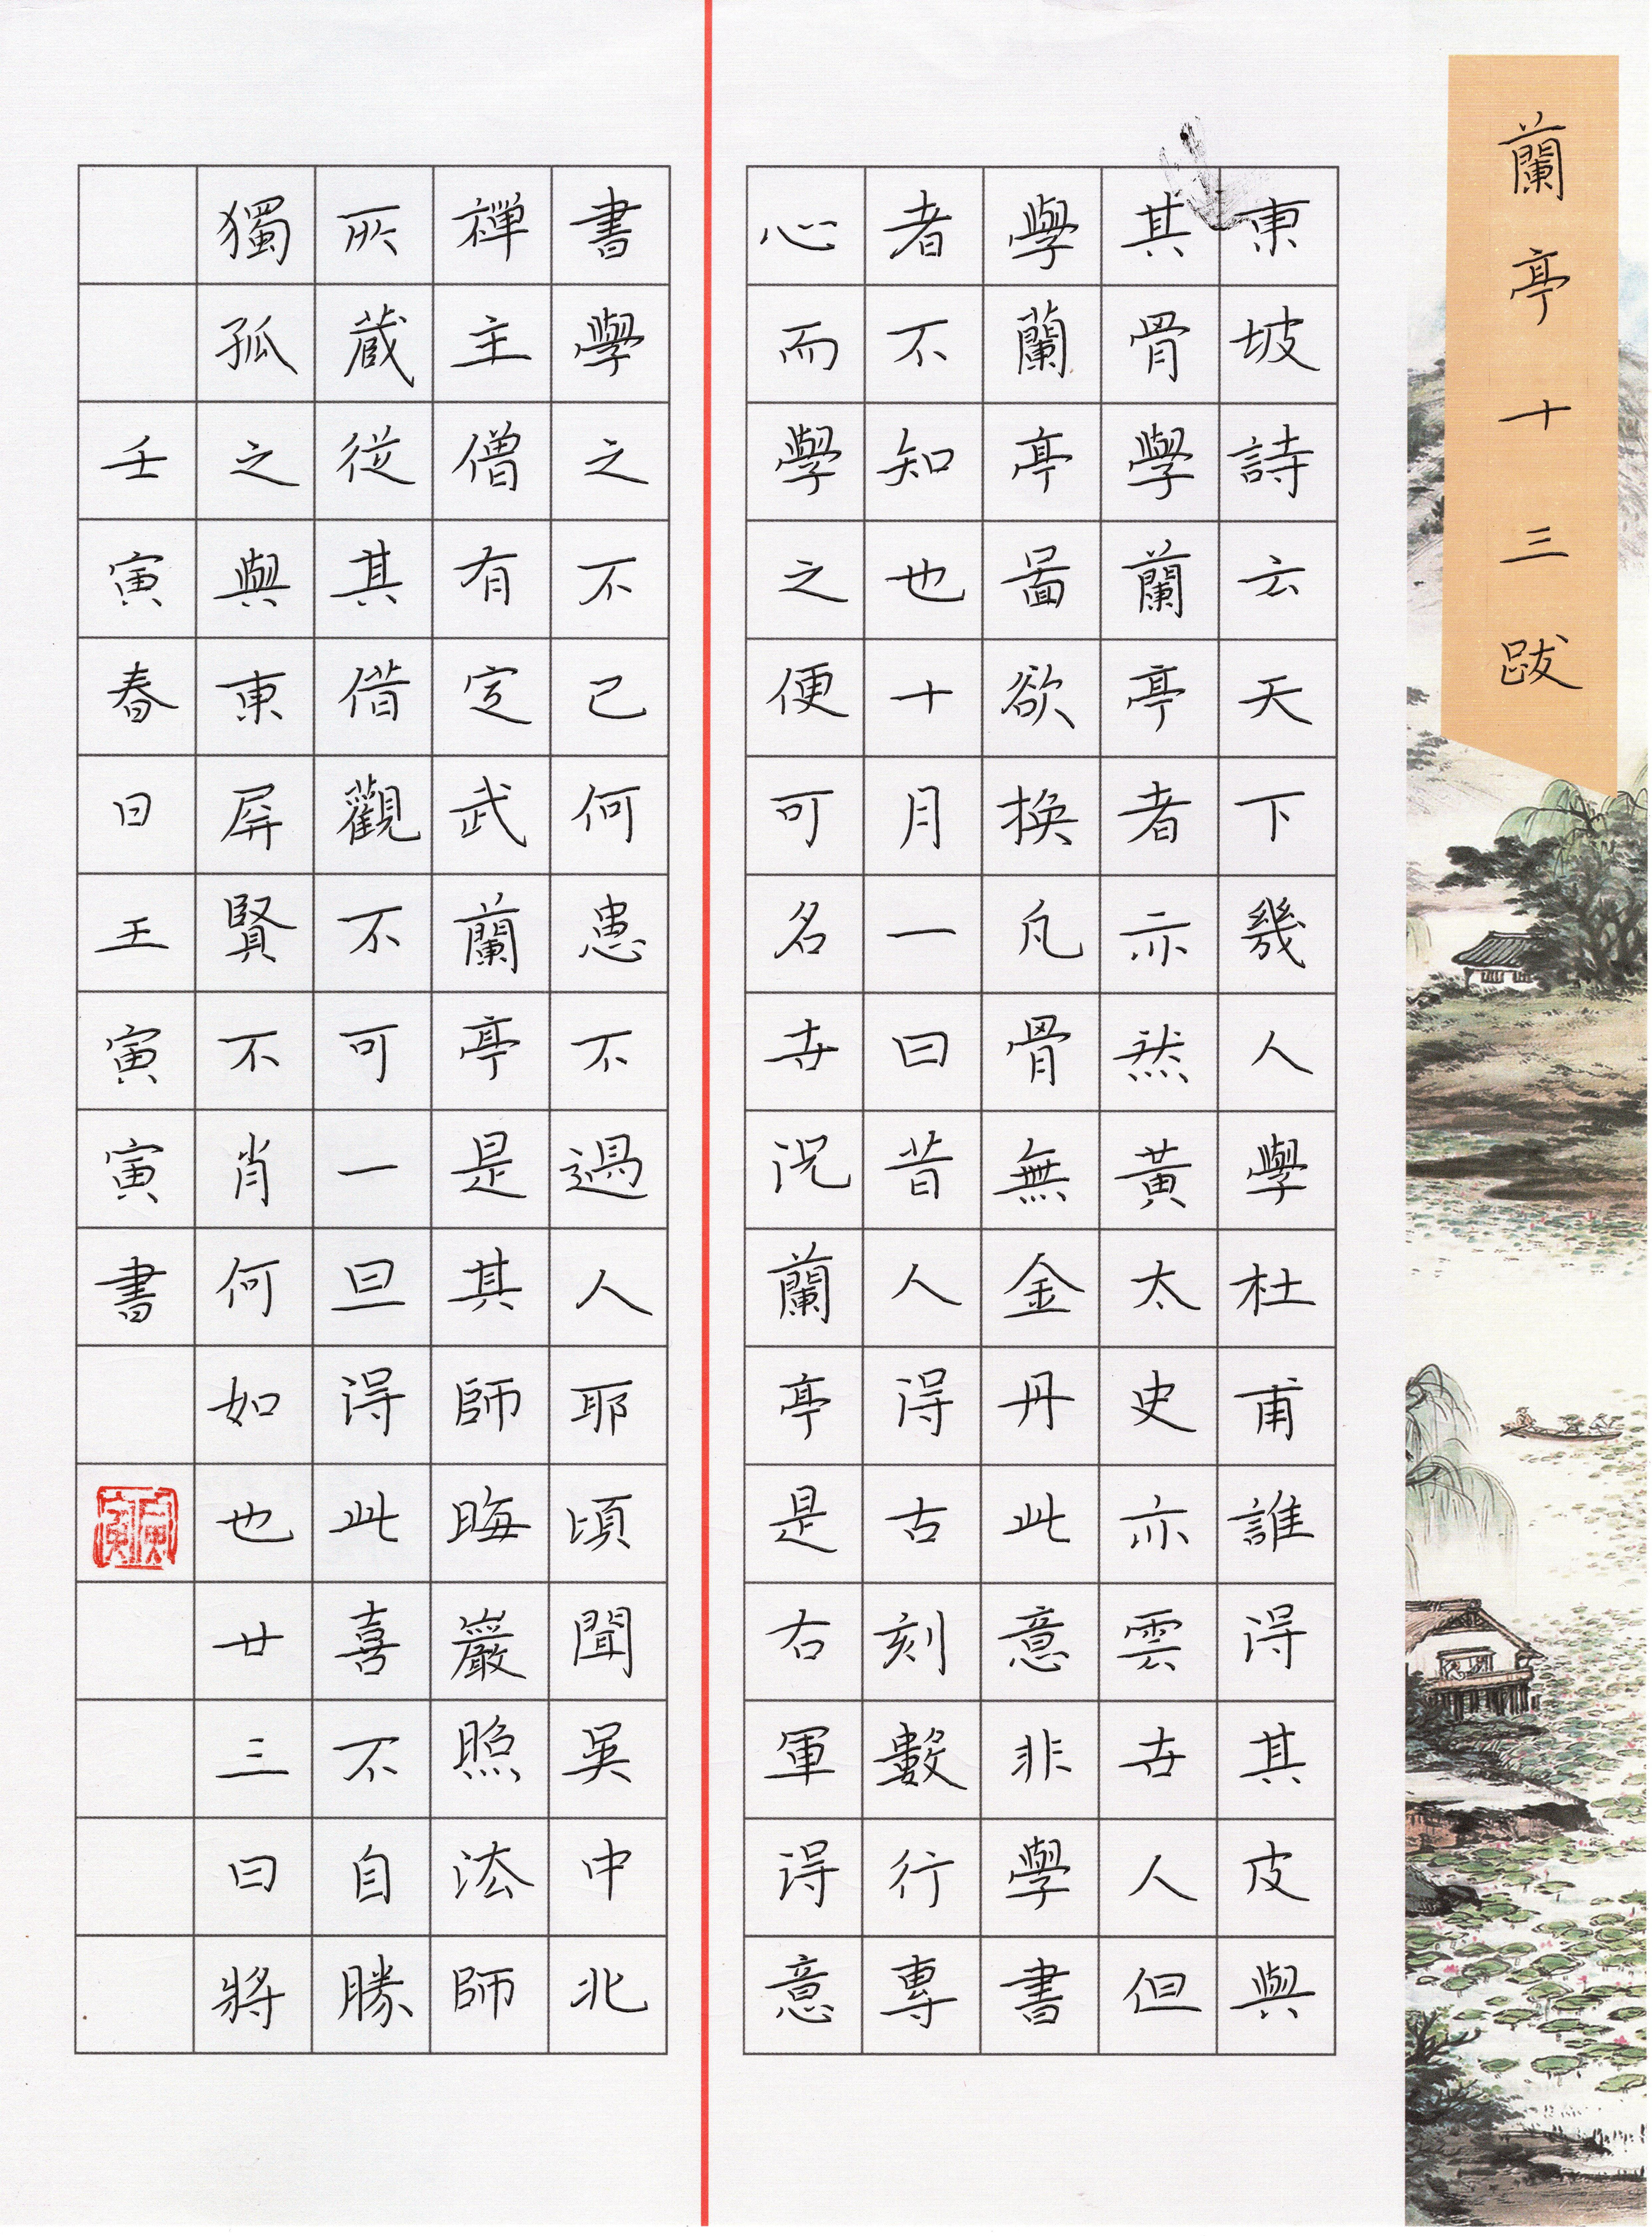 蘭亭十三跋
東坡詩云天下幾人學杜甫誰得其皮與
其骨學蘭亭者亦然黃太史亦云世人但
學蘭亭面欲換凡骨無金丹此意非學書
者不知也十月一日昔人得古刻數行專
心而學之便可名世況蘭亭是右軍得意
書學之不已何患不過人耶頃聞吳中北
禪主僧有定武蘭亭是其師晦巖照法師
所藏從其借觀不可一旦得此喜不自勝
獨孤之與東屏賢不肖何如也廿三日將
壬寅春日王寅寅書